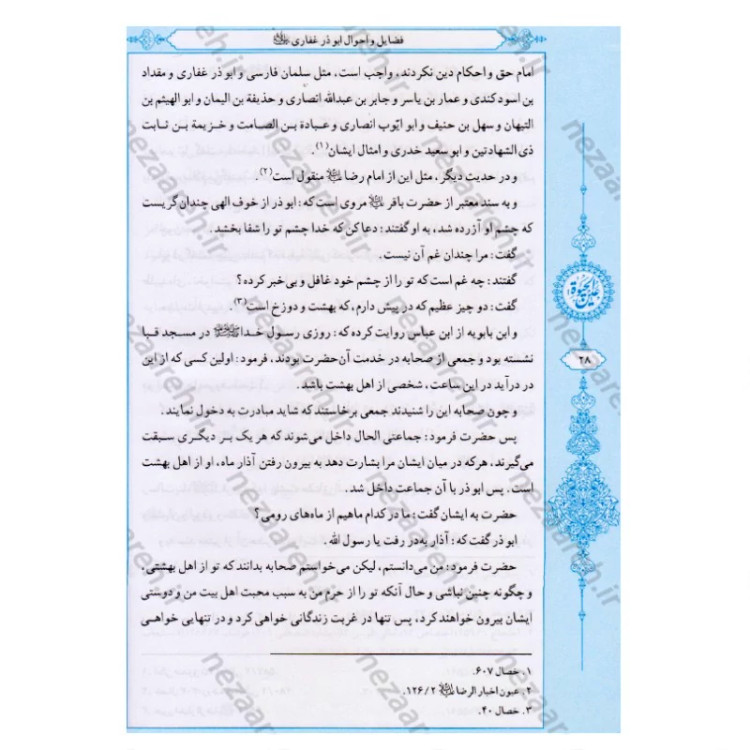 فضایل و احوال ابوذر غفاری
امام حق و احکام دین نکردند، واجب است، مثل سلمان فارسی و ابوذر غفاری و مقداد
بن اسود کندی و عمار بن یاسر و جابر بن عبدالله انصاری و حذیفة بن الیمان و ابو الهیثم بن
التیهان و سهل بن حنیف و ابو ایّوب انصاری و عبادة بـن الصـامت و خـزیمة بـن ثـابت
ذی الشهادتین و ابو سعید خدری و امثال ایشان(۱).
و در حدیث دیگر، مثل این از امام رضا منقول است(۲).
و به سند معتبر از حضرت باقر مروی است که: ابوذر از خوف الهی چندان گریست
که چشم او آزرده شد، به او گفتند: دعا کن که خدا چشم تو را شفا بخشد.
گفت: مرا چندان غم آن نیست.
گفتند: چه غم است که تو را از چشم خود غافل و بی‌خبر کرده؟
گفت: دو چیز عظیم که در پیش دارم، که بهشت و دوزخ است(۳).
و ابن بابویه از ابن عباس روایت کرده که: روزی رسـول خـدا در مسـجد قـبا
نشسته بود و جمعی از صحابه در خدمت آن حضرت بودند، فرمود: اولین کسی که از این
در درآید در این ساعت، شخصی از اهل بهشت باشد.
و چون صحابه این را شنیدند جمعی برخاستند که شاید مبادرت به دخول نمایند.
پس حضرت فرمود: جماعتی الحال داخل می‌شوند که هر یک بـر دیگـری سـبقت
می‌گیرند، هرکه در میان ایشان مرا بشارت دهد به بیرون رفتن آذار ماه، او از اهل بهشت
است. پس ابوذر با آن جماعت داخل شد.
حضرت به ایشان گفت: ما در کدام ماهیم از ماه‌های رومی؟
ابوذر گفت که: آذار به‌در رفت یا رسول الله.
حضرت فرمود: من می‌دانستم، لیکن می‌خواستم صحابه بدانند که تو از اهل بهشتی،
و چگونه چنین نباشی و حال آنکه تو را از حرم من به سبب محبت اهل بیت من و دوستی
ایشان بیرون خواهند کرد، پس تنها در غربت زندگانی خواهی کرد و در تنهایی خواهـی
۱. خصال ۶۰۷.
۲. عیون اخبار الرضا ۱۲۶/۲.
۳. خصال ۴۰.
عین الحیوة
۲۸
nezaareh.ir